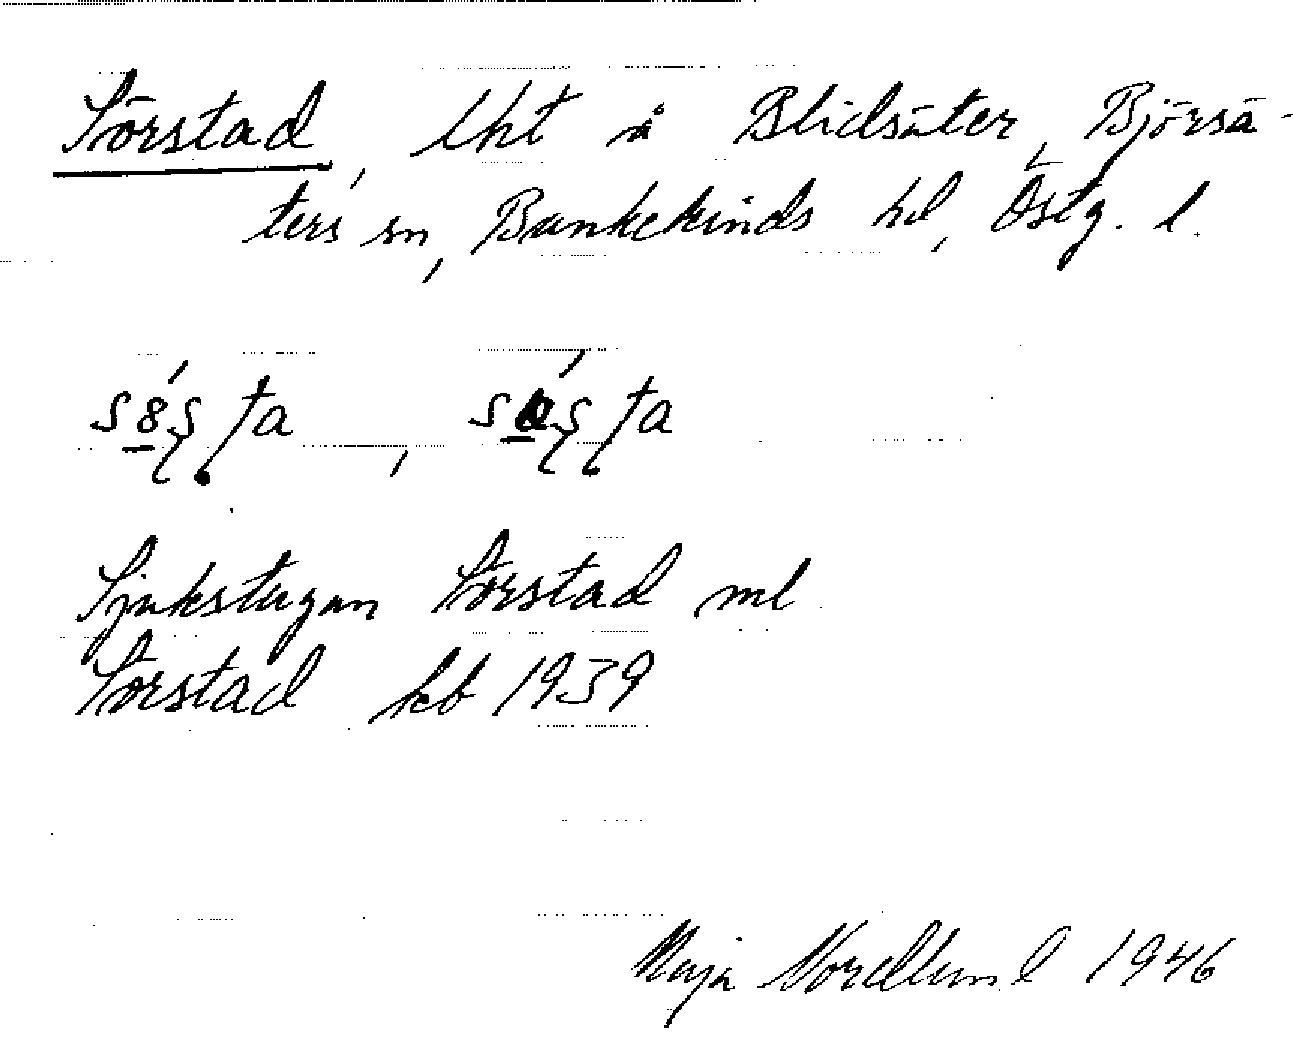 Sörstad, lht å Blidsäter, Björsä-
ters sn, Bankekinds hd, Östg. l.
Sjukstugan Sörstad ml
Sörstad kb 1939
Maja Nordlund 1946